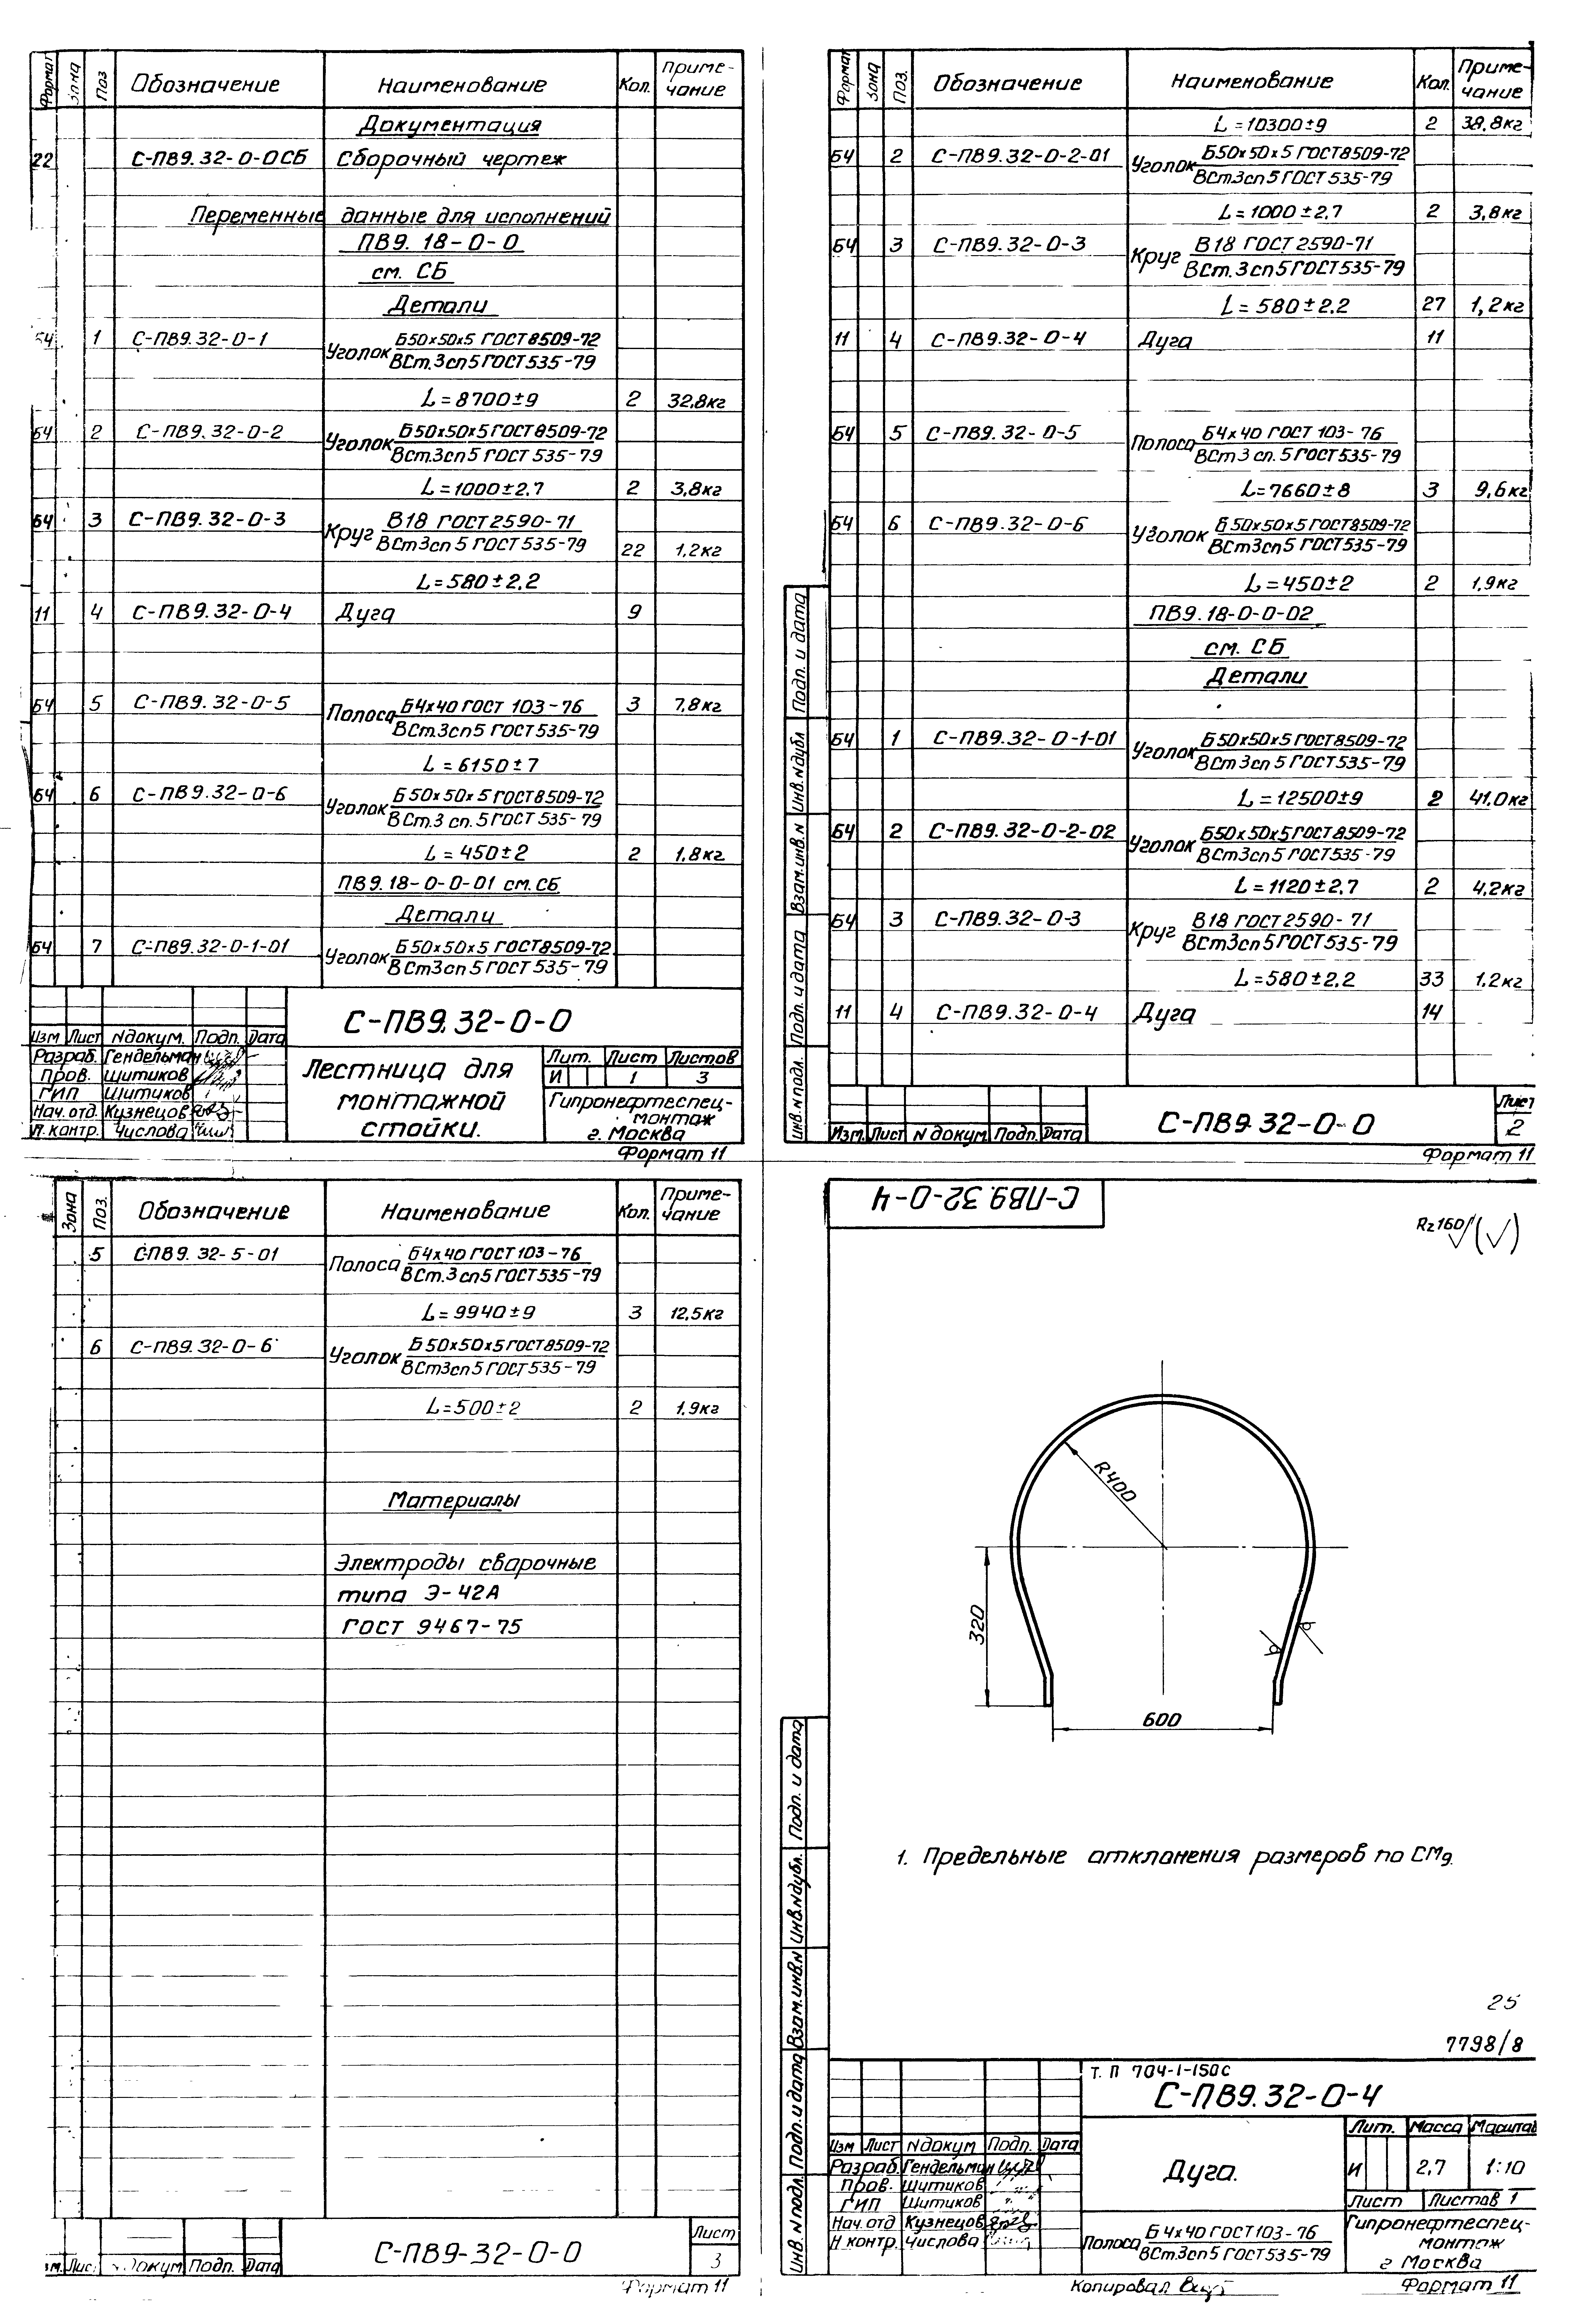 Формат Зона Поз Обозначение Наименование Кол. Приме-
чание
Документация
22 С-ПВ9.32-0-0СБ Сборочный чертеж
Переменные данные для исполнений
ПВ9.18-0-0
см. СБ
Детали
Б4 1 С-ПВ9.32-0-1 Уголок Б50х50х5 ГОСТ8509-72
ВСт.3сп5ГОСТ535-79
L=8700±9 2 32,8кг
Б4 2 С-ПВ9.32-0-2 Уголок Б50х50х5ГОСТ8509-72
ВСт.3сп5ГОСТ535-79
L=1000±2,7 2 3,8кг
Б4 3 С-ПВ9.32-0-3 Круг В18 ГОСТ2590-71
ВСт3сп5 ГОСТ535-79
22 1,2кг
L=580±2,2
11 4 С-ПВ9.32-0-4 Дуга 9
Б4 5 С-ПВ9.32-0-5 Полоса Б4х40 ГОСТ 103-76 3 7,8кг
ВСт.3сп5ГОСТ535-79
L=6150±7
Б4 6 С-ПВ9.32-0-6 Уголок Б50х50х5ГОСТ8509-72
ВСт.3 сп.5ГОСТ535-79
L=450±2 2 1,8кг.
ПВ9.18-0-0-01 см.СБ
Детали
Б4 7 С-ПВ9.32-0-1-01 Уголок Б50х50х5ГОСТ8509-72
ВСт3сп5ГОСТ535-79
С-ПВ9.32-0-0
Изм Лист Nдокум. Подп. Дата
Разраб. Гендельман
Пров. Шитиков
ГИП Шитиков
Нач.отд. Кузнецов
Н.контр. Числова
Лестница для
монтажной
стойки.
Лит. Лист Листов
И 1 3
Гипронефтеспец-
монтаж
г. Москва
Формат 11
Формат Зона Поз. Обозначение Наименование Кол. Приме-
чание
L=10300±9 2 38,8кг
Б4 2 С-ПВ9.32-0-2-01 Уголок Б50х50х5ГОСТ8509-72
ВСт3сп5ГОСТ535-79
L=1000±2,7 2 3,8кг
Б4 3 С-ПВ9.32-0-3 Круг В18 ГОСТ2590-71
ВСт.3сп5ГОСТ535-79
L=580±2,2 27 1,2кг
11 4 С-ПВ9.32-0-4 Дуга 11
Б4 5 С-ПВ9.32-0-5 Полоса Б4х40 ГОСТ 103-76
ВСт3сп.5ГОСТ535-79
L=7660±8 3 9,6кг
Б4 6 С-ПВ9.32-0-6 Уголок Б50х50х5ГОСТ8509-72
ВСт3сп5ГОСТ535-79
L=450±2 2 1,9кг
ПВ9.18-0-0-02
см. СБ
Детали
Б4 1 С-ПВ9.32-0-1-01 Уголок Б50х50х5ГОСТ8509-72
ВСт3сп5ГОСТ535-79
L=12500±9 2 41,0кг
Б4 2 С-ПВ9.32-0-2-02 Уголок Б50х50х5ГОСТ8509-72
ВСт3сп5ГОСТ535-79
L=1120±2,7 2 4,2кг
Б4 3 С-ПВ9.32-0-3 Круг В18 ГОСТ2590-71
ВСт3сп5ГОСТ535-79
L=580±2,2 33 1,2кг
11 4 С-ПВ9.32-0-4 Дуга 14
Подп. и дата
Инв.Nдубл
Взам.инв.N
Подп. и дата
инв.Nподл.
Изм. Лист Nдокум. Подп. Дата
С-ПВ9.32-0-0
Лист
2
Формат 11
Зона Поз. Обозначение Наименование Кол. Приме-
чание
5 С-ПВ9.32-5-01 Полоса Б4х40 ГОСТ103-76
ВСт.3сп5ГОСТ535-79
L=9940±9 3 12,5кг
6 С-ПВ9.32-0-6 Уголок Б50х50х5ГОСТ8509-72
ВСт3сп5ГОСТ535-79
L=500±2 2 1,9кг
Материалы
Электроды сварочные
типа Э-42А
ГОСТ 9467-75
Лис Nдокум Подп. Дата
С-ПВ9-32-0-0
Лист
3
Формат 11
С-ПВ9.32-0-4
Rz160 (√)
R400
320
600
1. Предельные отклонения размеров по СМ9.
25
7798/8
Подп. и дата
Инв.Nдубл.
Взам.инв.N
Подп. и дата
Инв.Nподл.
Т. П 704-1-150С
С-ПВ9.32-0-4
Изм Лист Nдокум Подп. Дата
Разраб. Гендельман
Пров. Шитиков
ГИП Шитиков
Нач.отд Кузнецов
Н контр. Числова
Дуга.
Лит. Масса Масштаб
И 2,7 1:10
Лист Листов 1
Полоса Б4х40 ГОСТ103-76
ВСт3сп5 ГОСТ535-79
Гипронефтеспец-
монтаж
г Москва
Копировал
Формат 11